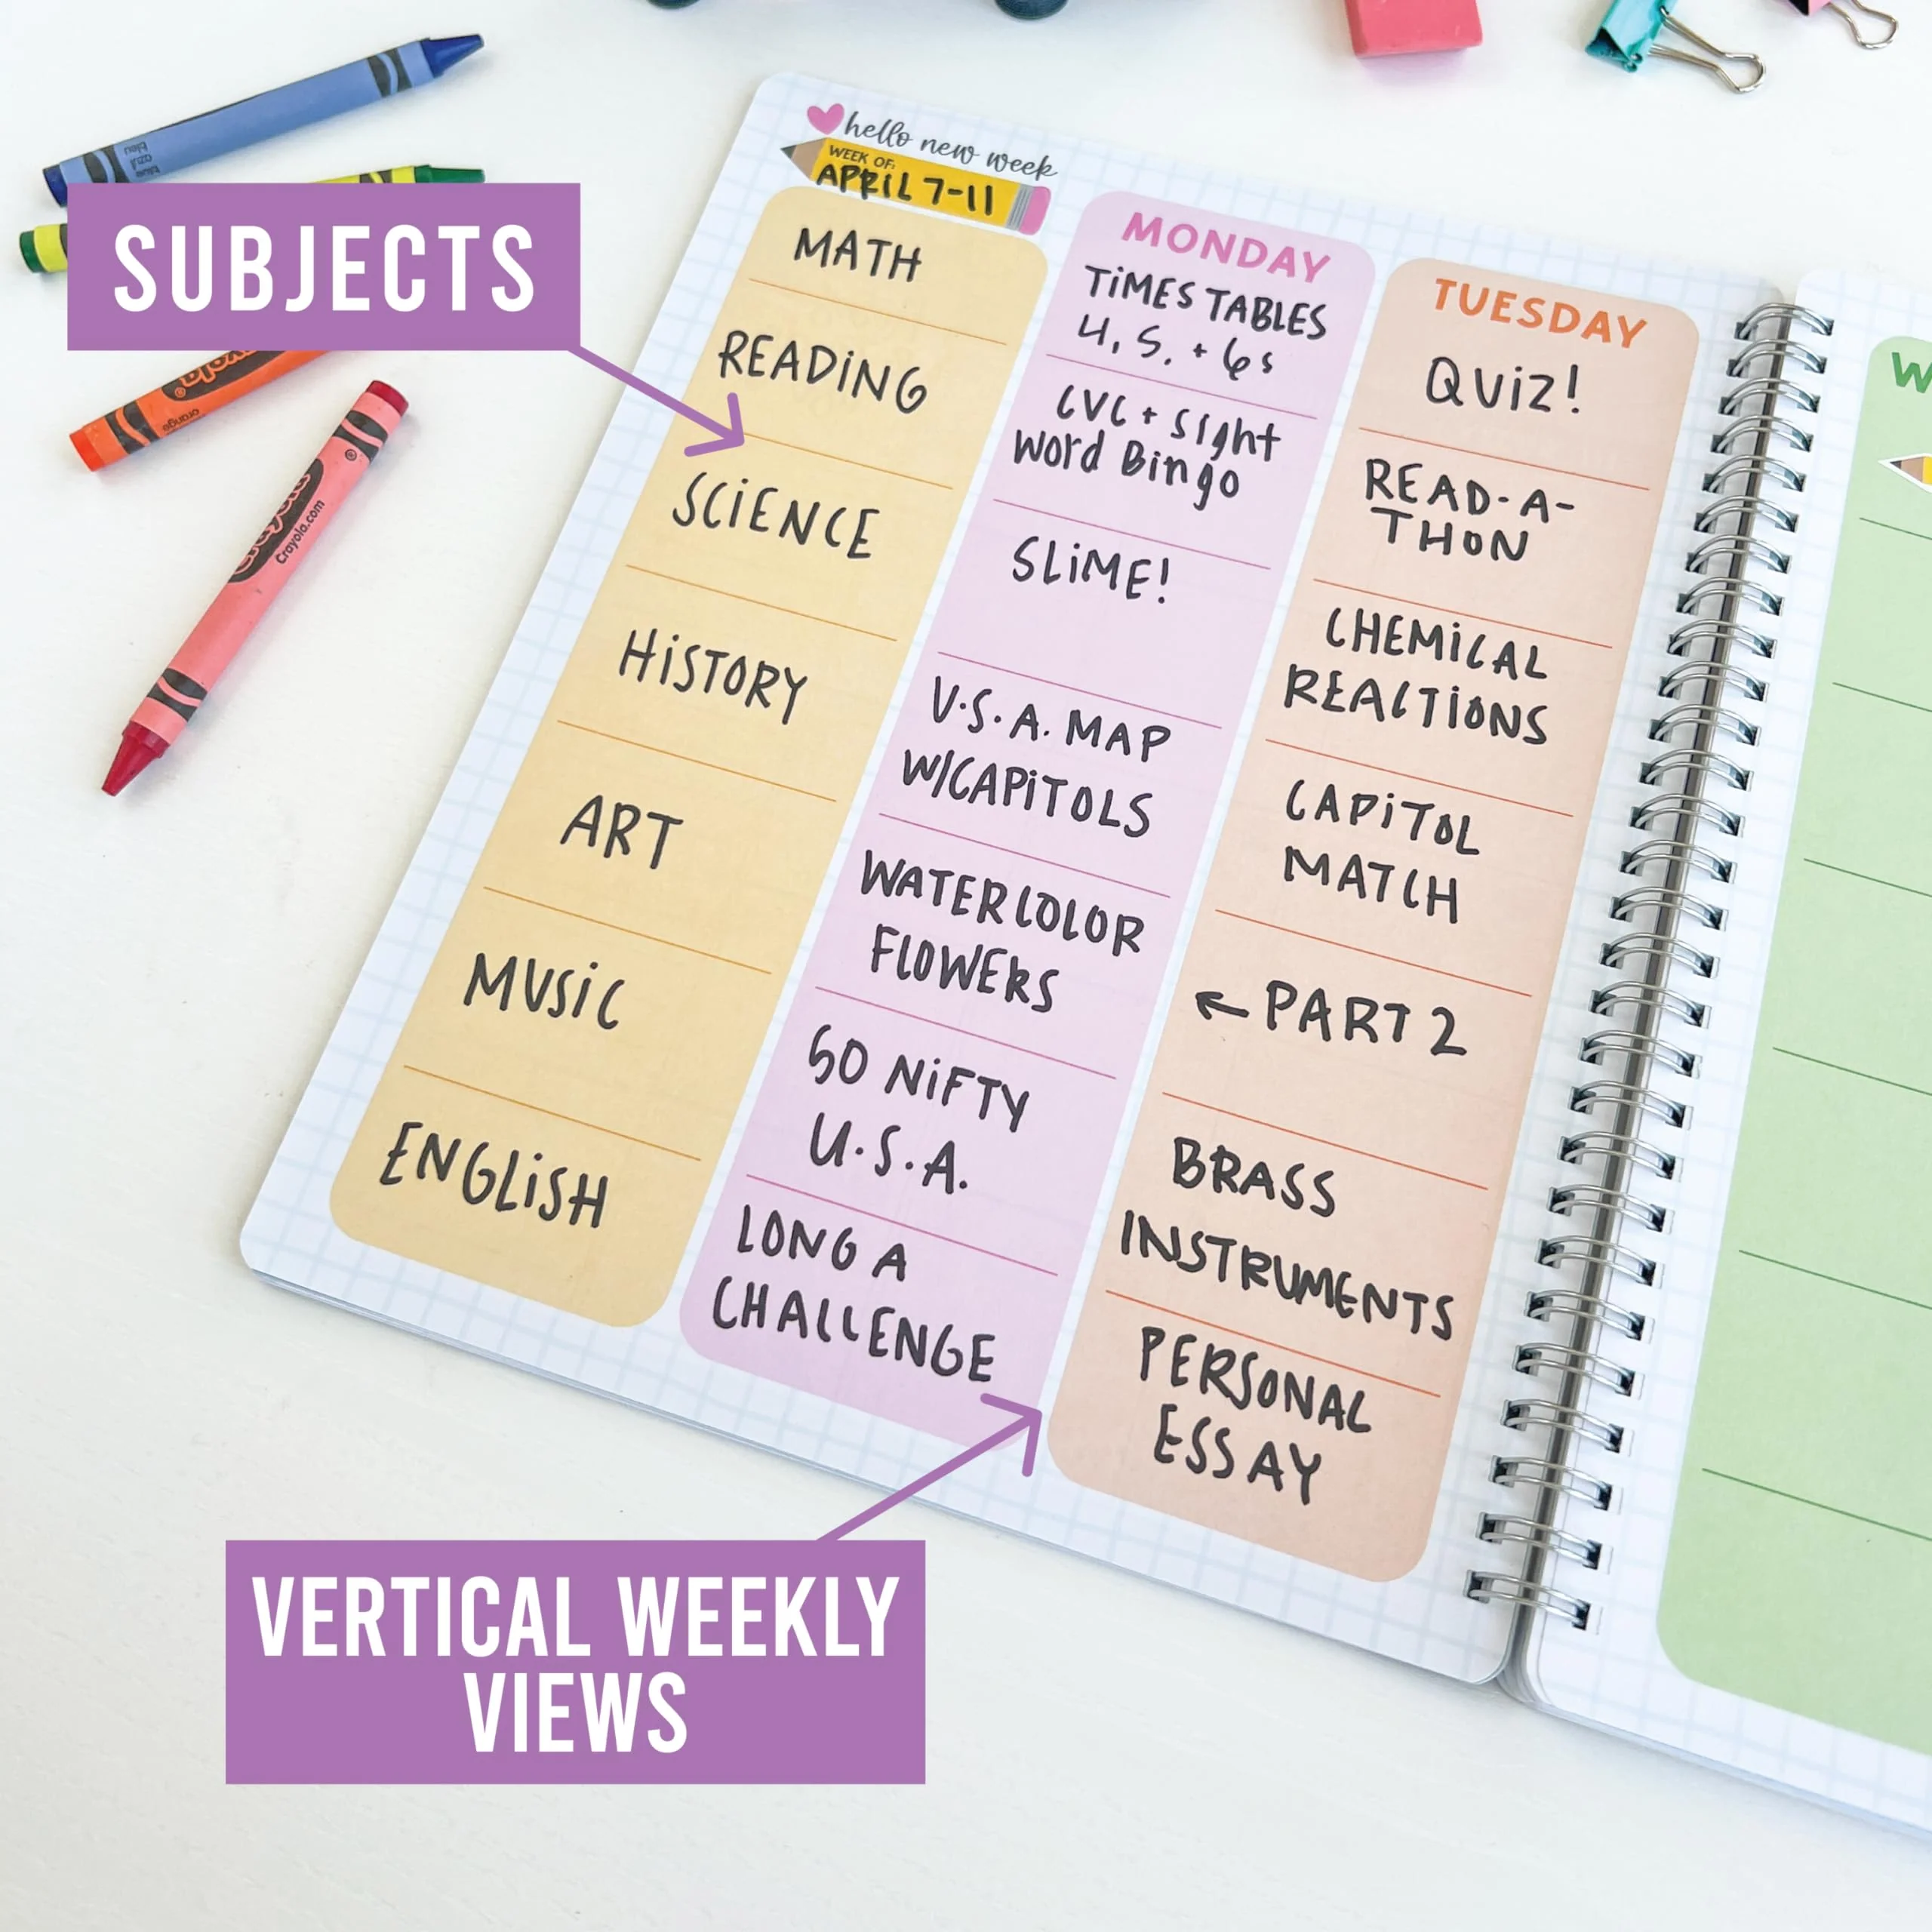 hello new week
WEEK OF:
APRIL 7-11
SUBJECTS
MATH
READING
SCIENCE
HISTORY
ART
MUSIC
ENGLISH
MONDAY
TIMES TABLES
4, 5, + 6s
CVC + Sight
Word Bingo
SLIME!
U.S.A. MAP
W/CAPITOLS
WATERCOLOR
FLOWERS
50 NIFTY
U.S.A.
LONG A
CHALLENGE
TUESDAY
QUIZ!
READ-A-
THON
CHEMICAL
REACTIONS
CAPITOL
MATCH
← PART 2
BRASS
INSTRUMENTS
PERSONAL
ESSAY
W
VERTICAL WEEKLY
VIEWS
bleu
azul
blue
orange
Crayola.com